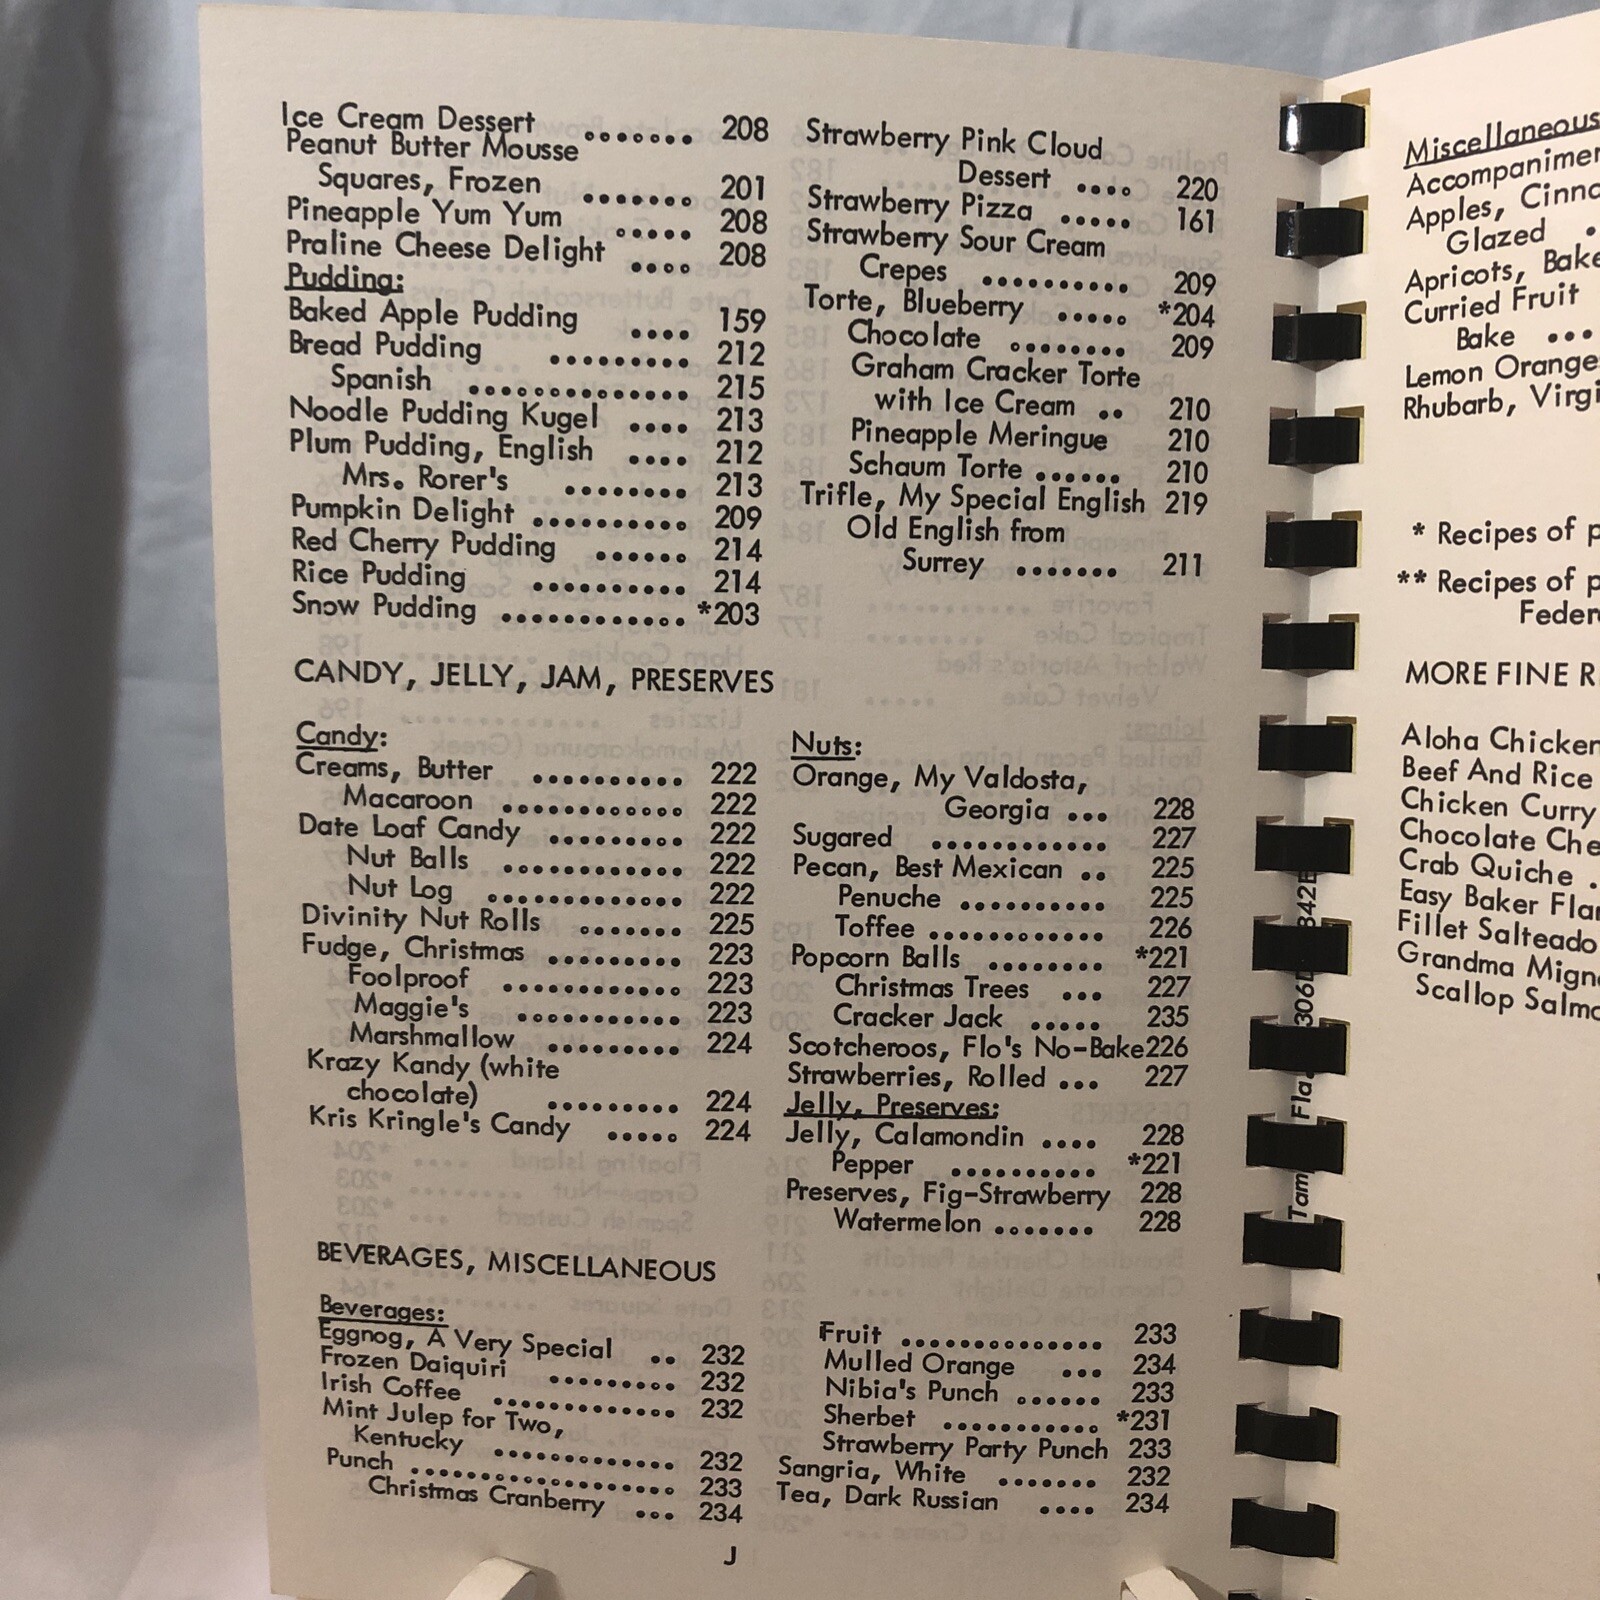 Ice Cream Dessert ....... 208
Peanut Butter Mousse
Squares, Frozen ....... 201
Pineapple Yum Yum ..... 208
Praline Cheese Delight .... 208
Pudding:
Baked Apple Pudding .... 159
Bread Pudding ......... 212
Spanish .............. 215
Noodle Pudding Kugel .... 213
Plum Pudding, English .... 212
Mrs. Rorer's ........ 213
Pumpkin Delight .......... 209
Red Cherry Pudding ...... 214
Rice Pudding .......... 214
Snow Pudding ............ *203
Strawberry Pink Cloud
Dessert .... 220
Strawberry Pizza ..... 161
Strawberry Sour Cream
Crepes .......... 209
Torte, Blueberry ..... *204
Chocolate ........ 209
Graham Cracker Torte
with Ice Cream .. 210
Pineapple Meringue 210
Schaum Torte ...... 210
Trifle, My Special English 219
Old English from
Surrey ....... 211
CANDY, JELLY, JAM, PRESERVES
Candy:
Creams, Butter .......... 222
Macaroon ............ 222
Date Loaf Candy ......... 222
Nut Balls ............ 222
Nut Log ............. 222
Divinity Nut Rolls ....... 225
Fudge, Christmas ......... 223
Foolproof ............ 223
Maggie's ........... 223
Marshmallow ......... 224
Krazy Kandy (white
chocolate) ......... 224
Kris Kringle's Candy ..... 224
Nuts:
Orange, My Valdosta,
Georgia ... 228
Sugared ............ 227
Pecan, Best Mexican .. 225
Penuche .......... 225
Toffee ............ 226
Popcorn Balls ........ *221
Christmas Trees ... 227
Cracker Jack ..... 235
Scotcheroos, Flo's No-Bake226
Strawberries, Rolled ... 227
Jelly, Preserves:
Jelly, Calamondin .... 228
Pepper .......... *221
Preserves, Fig-Strawberry 228
Watermelon ....... 228
BEVERAGES, MISCELLANEOUS
Beverages:
Eggnog, A Very Special .. 232
Frozen Daiquiri ......... 232
Irish Coffee ............. 232
Mint Julep for Two,
Kentucky ............. 232
Punch ................... 233
Christmas Cranberry ... 234
Fruit .............. 233
Mulled Orange ... 234
Nibia's Punch ...... 233
Sherbet ........... *231
Strawberry Party Punch 233
Sangria, White ....... 232
Tea, Dark Russian .... 234
J
Miscellaneous
Apples,
Glazed
Apricots,
Curried Fruit
Bake ...
Lemon
Rhubarb,
* Recipes of
** Recipes of
MORE FINE
Aloha Chicken
Beef And Rice
Chicken Curry
Chocolate
Crab Quiche
Easy Baker
Fillet Salteado
Grandma
Scallop